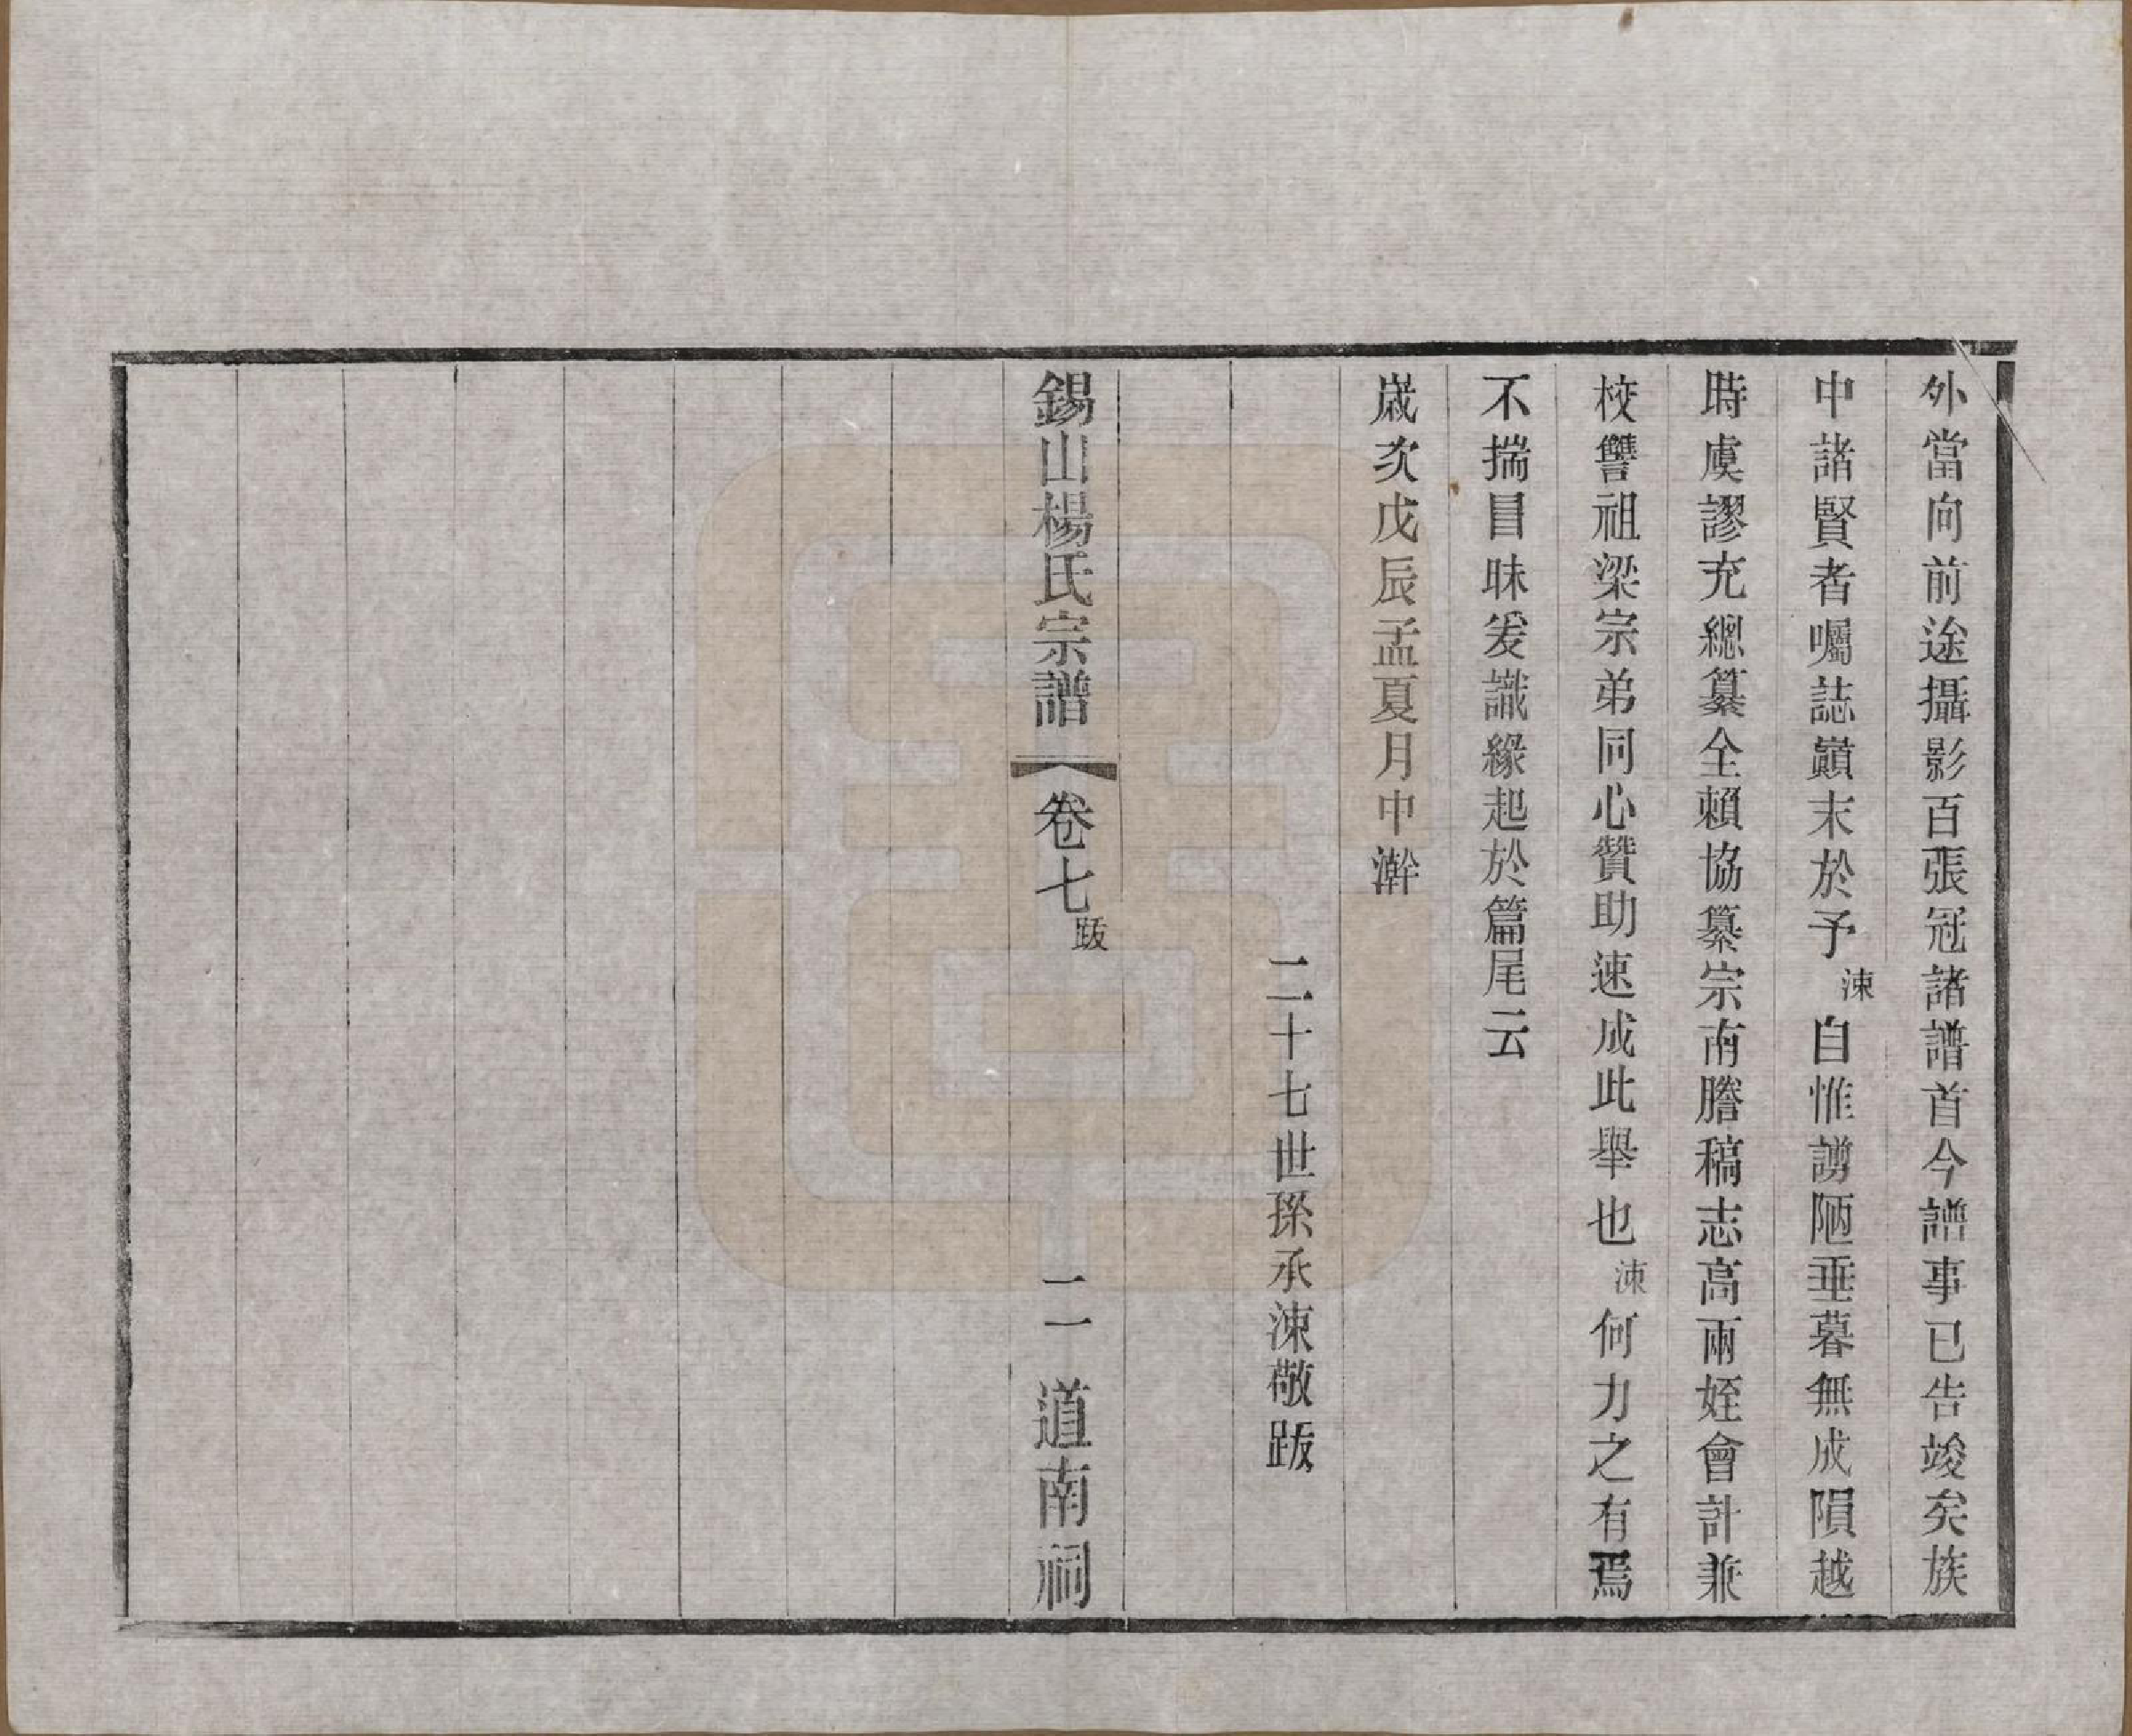 外當向前途攝影百張冠諸譜首今譜事已告竣矣族
中諸賢者囑誌巔末於予涷自惟謭陋垂暮無成隕越
時虞謬充總纂全賴協纂宗南謄稿志高兩姪會計兼
校讐祖梁宗弟同心贊助速成此舉也涷何力之有焉
不揣冒昧爰識緣起於篇尾云
歲次戊辰孟夏月中澣
二十七世孫承涷敬跋
錫山楊氏宗譜 卷七 跋 二 道南祠